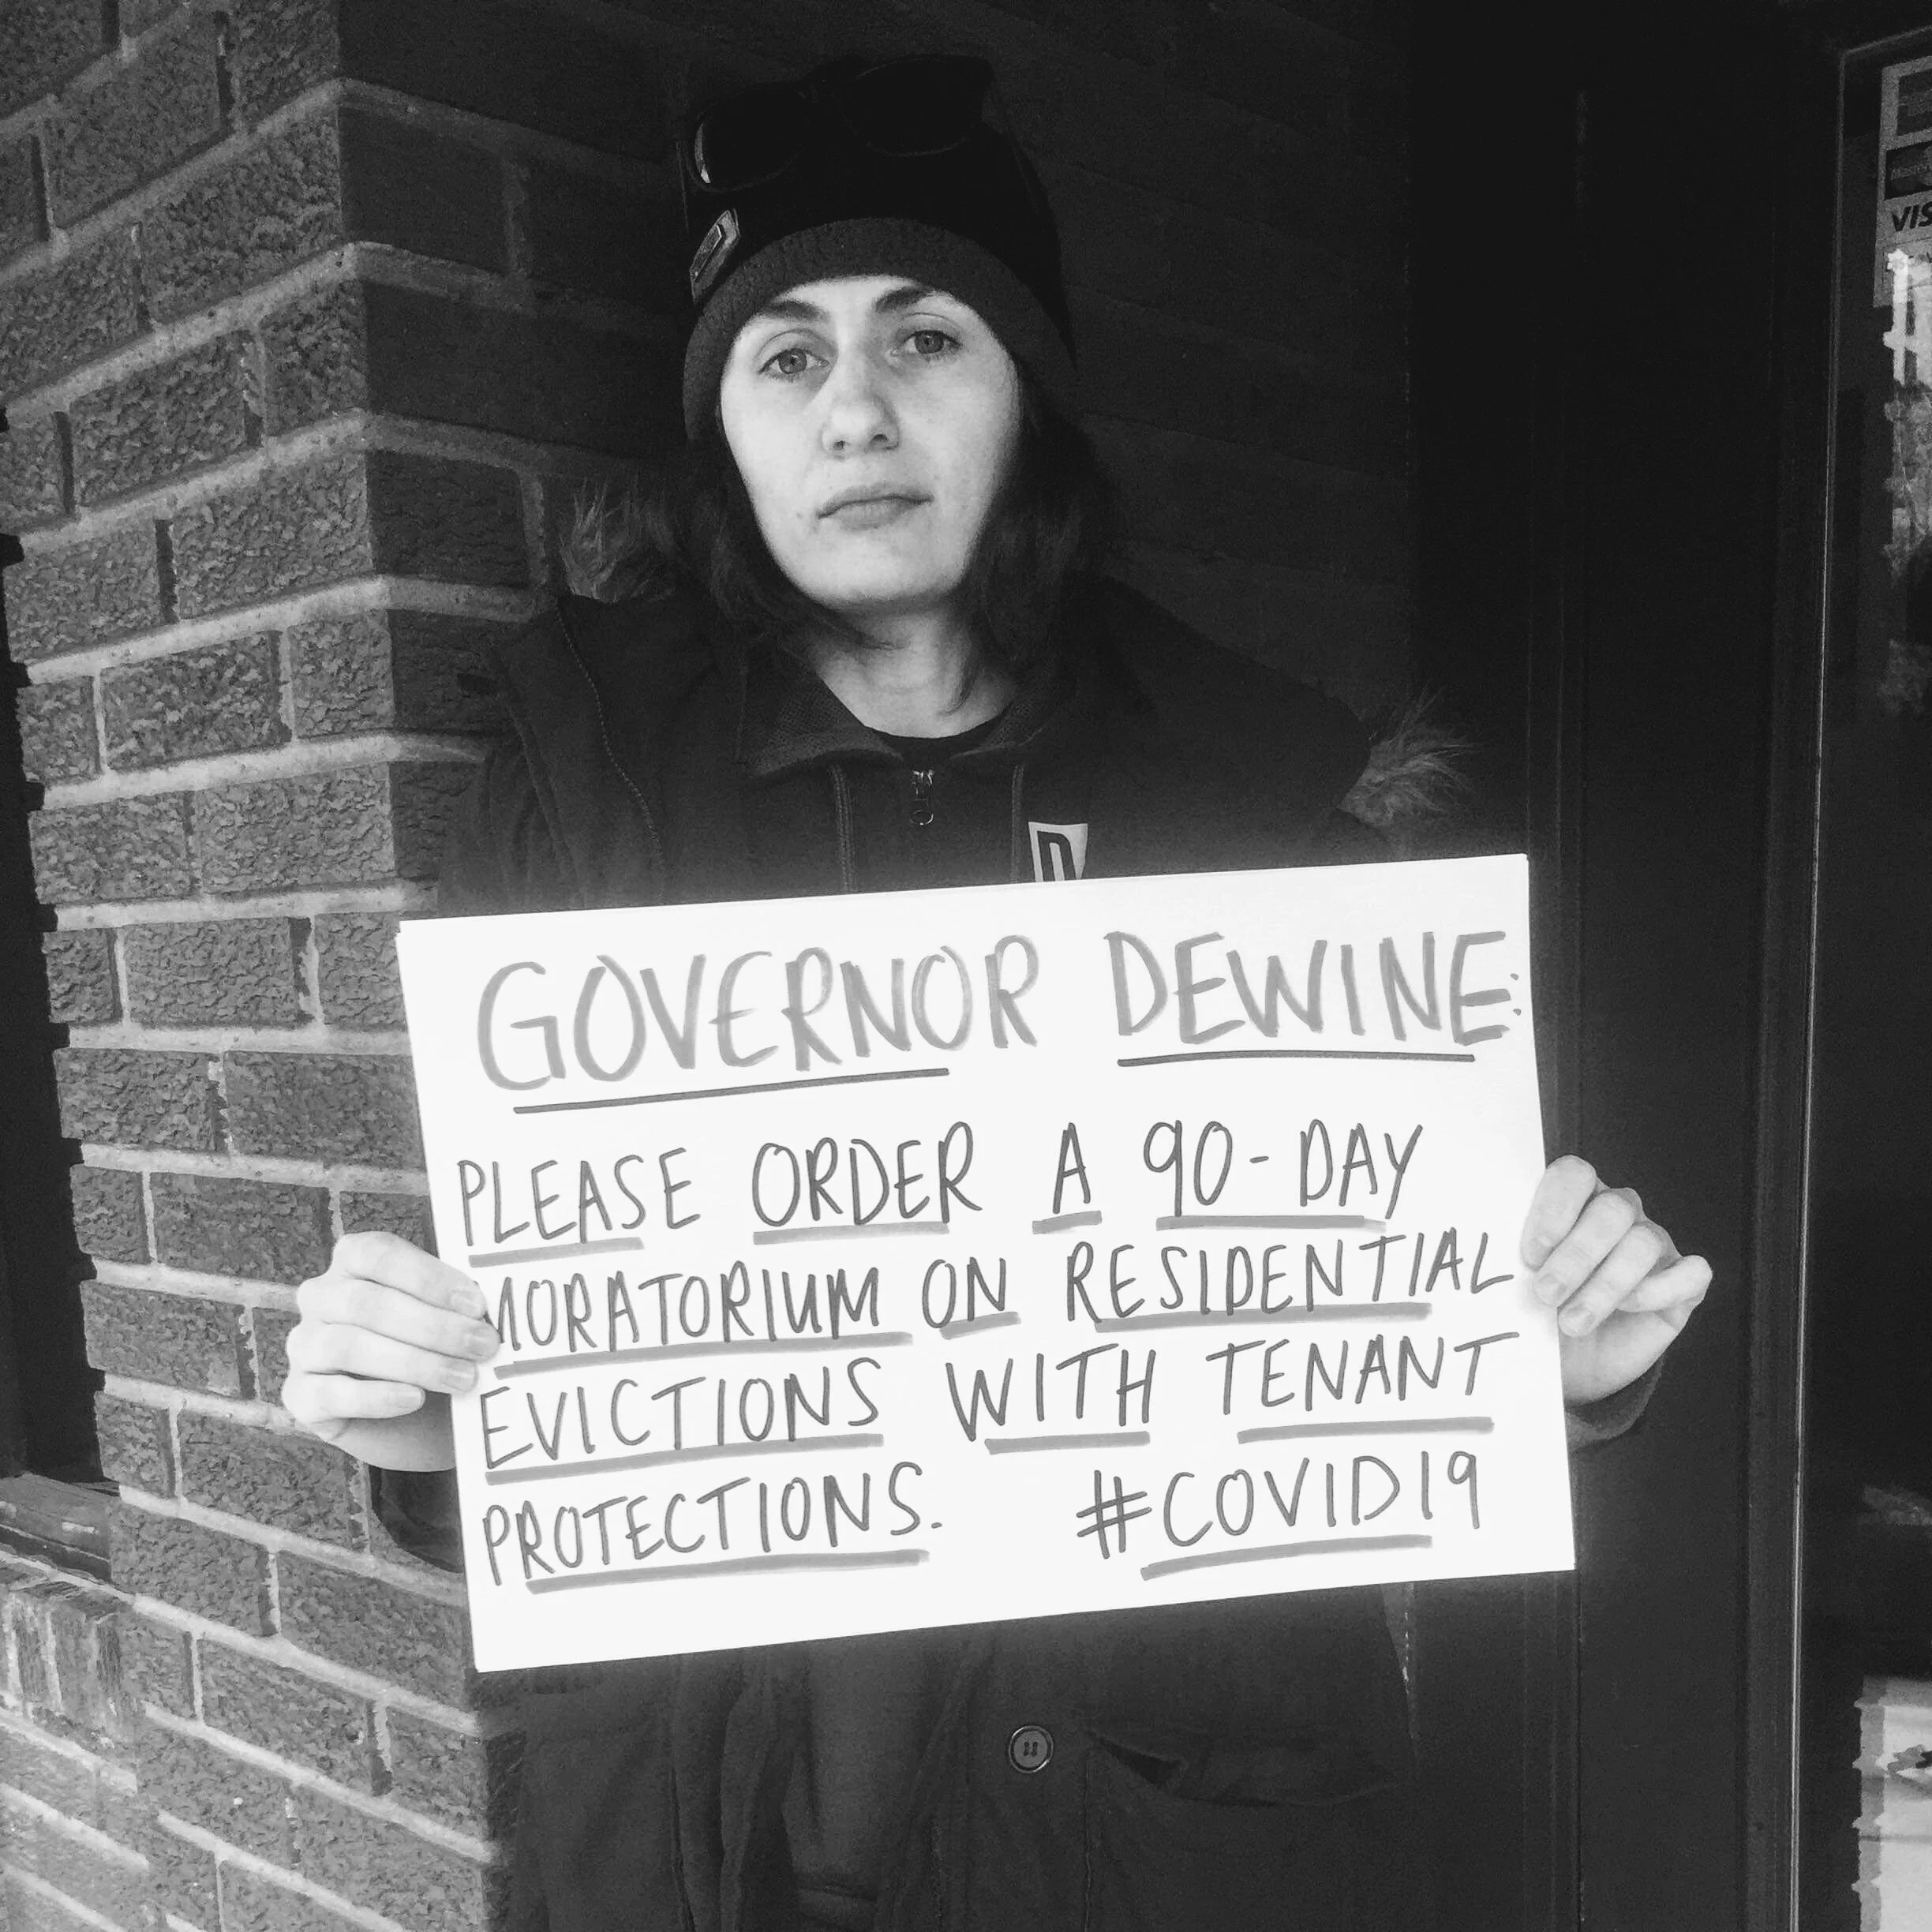 GOVERNOR DEWINE:
PLEASE ORDER A 90-DAY
MORATORIUM ON RESIDENTIAL
EVICTIONS WITH TENANT
PROTECTIONS. #COVID19